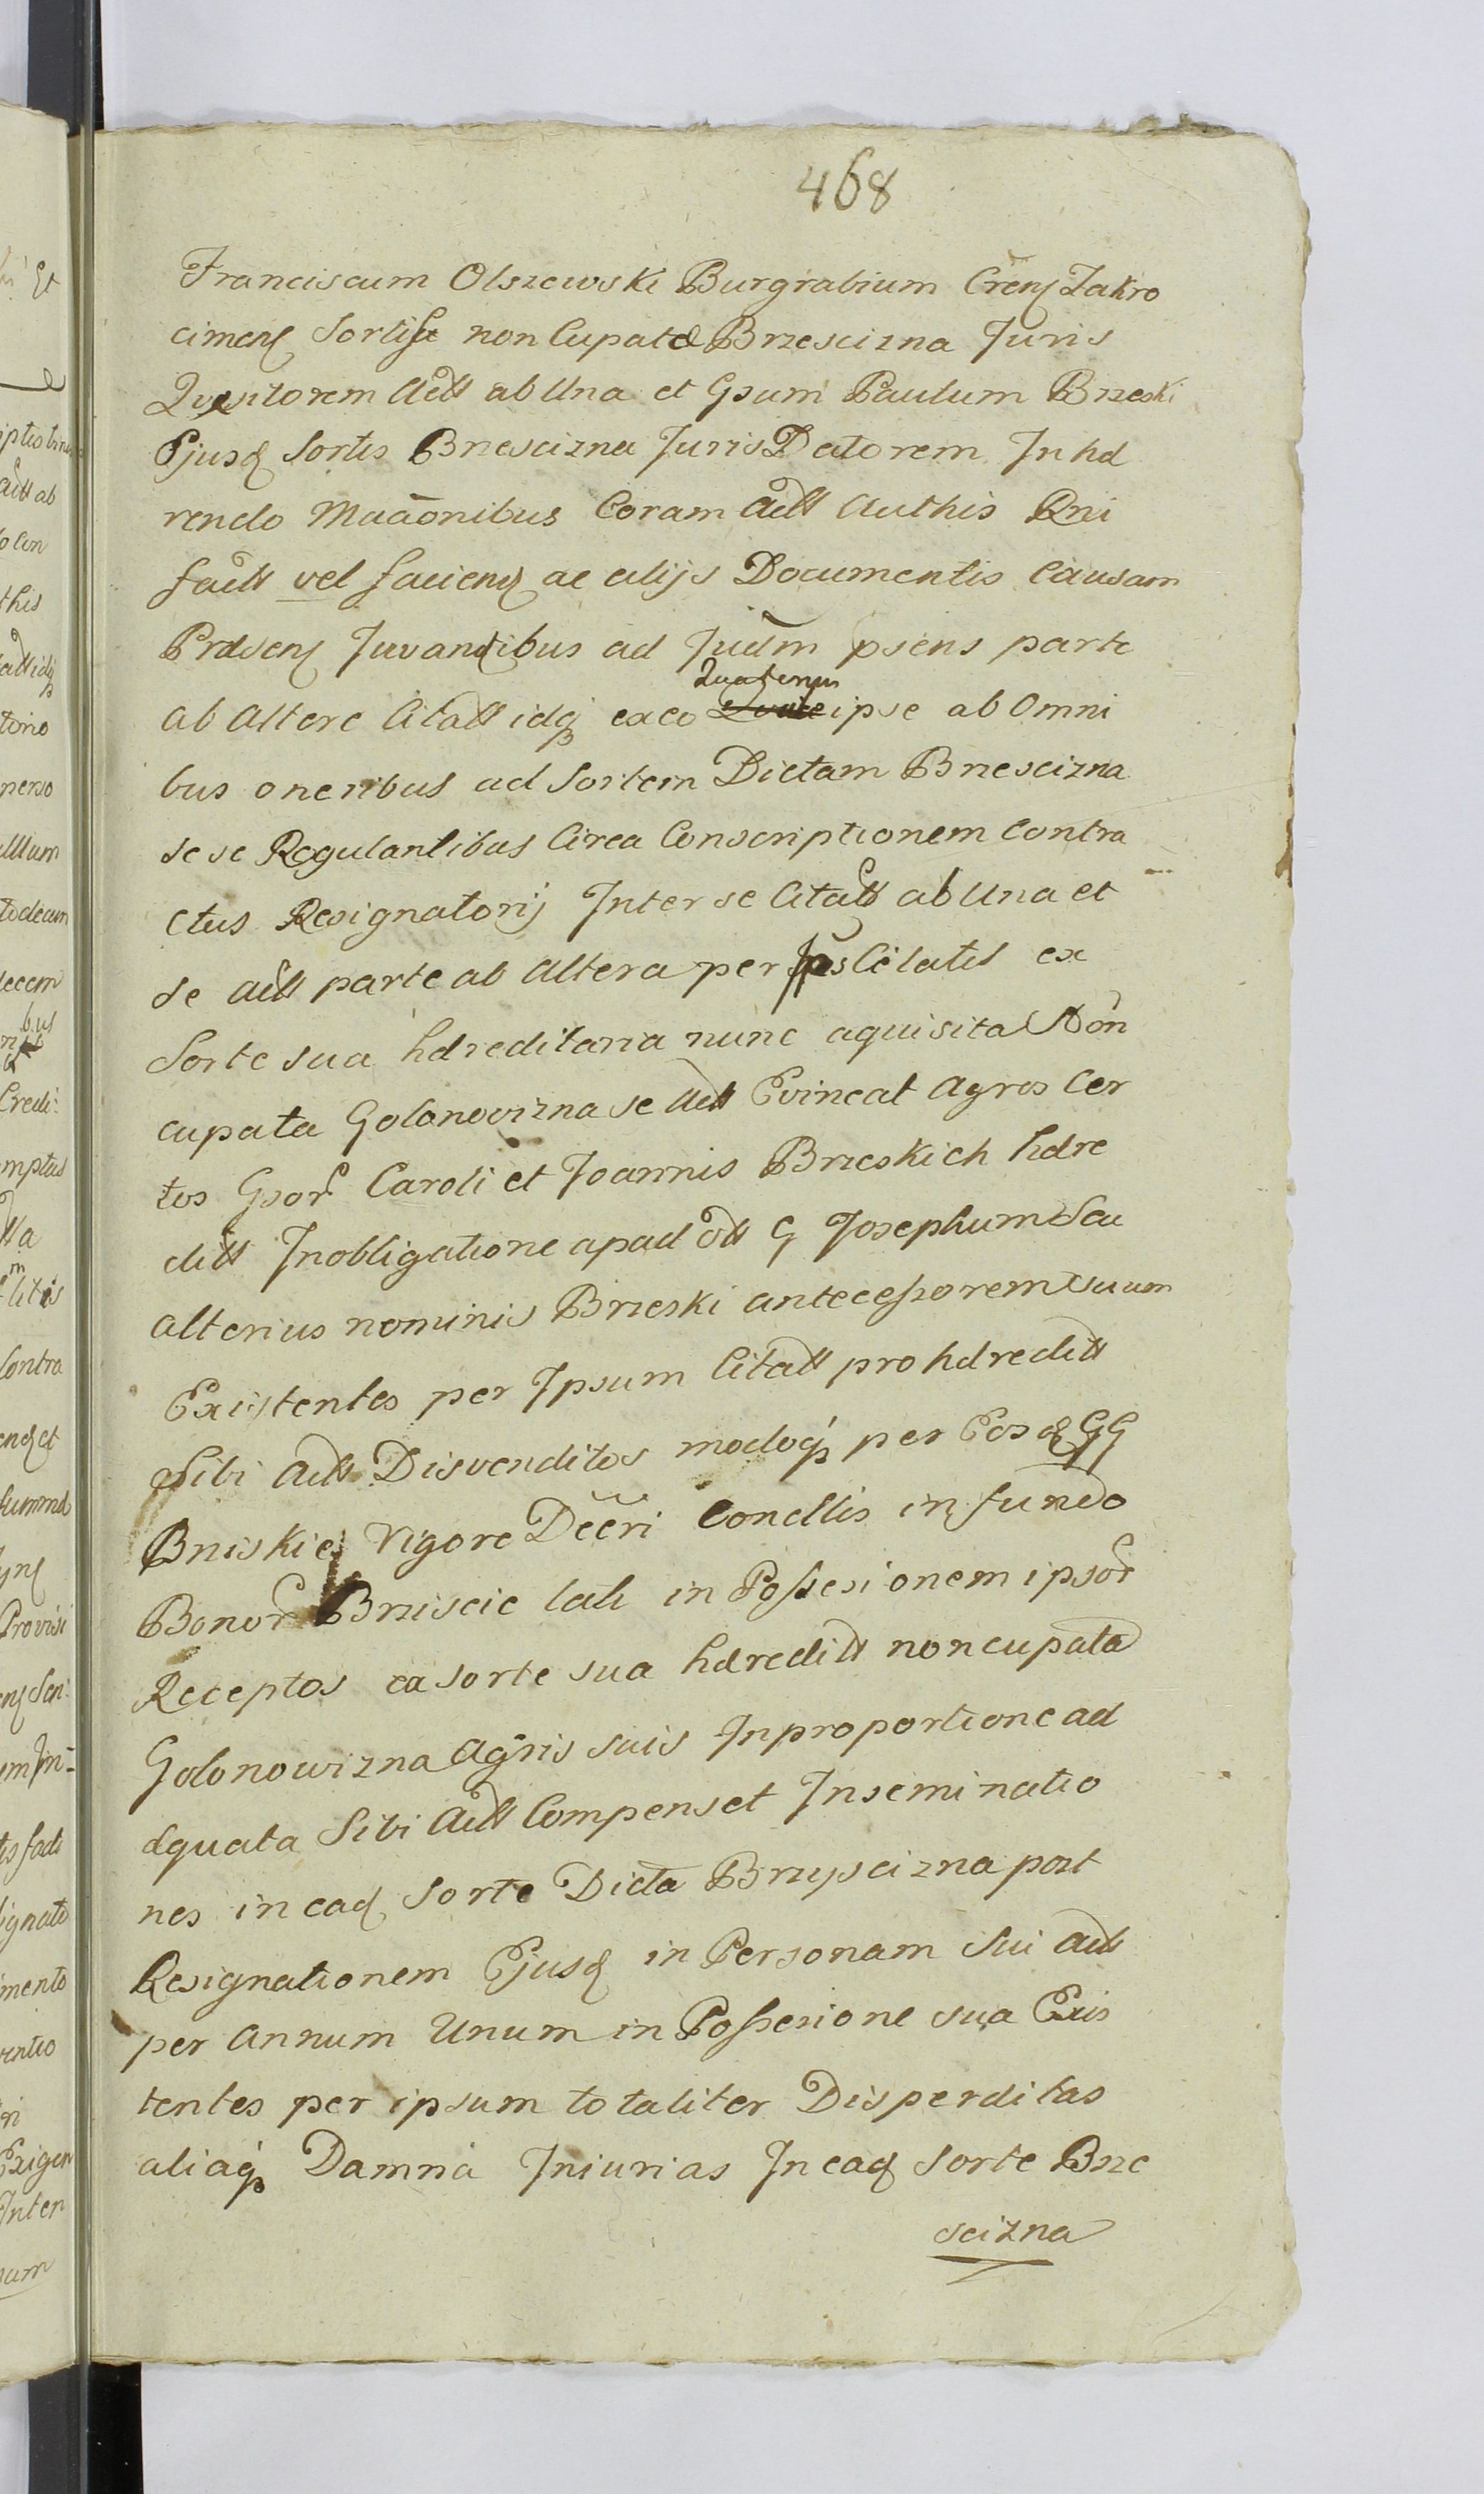 468
Franciscum Olszewski Burgrabium Crens Zakro
cimens Sortisq nonCupatæ Brzescizna Juris
Quesitorem Actt ab Una et Gsum Paulum Brzeski
Ejusd Sortis Brzescizna Juris Datorem Inhæ
rendo Maãonibus Coram Actt Authis Rni
factt vel faciens ac alijs Documentis Causam
Præsens Juvantibus ad Judm psens parte
ab Altere Citatt idq ex eo Quatenus ipse ab Omni
bus oneribus ad Sortem Dictam Brzescizna
sese Regulantibus Circa Conscriptionem Contra
ctus Resignatorij Inter se Citatt ab Una et
se Actt parte ab Altera per Citatt ex
Sorte sua hæreditaria nunc aquisita Non
cupata Golonowizna se Actt Evincat Agros Cer
tos Gsor Caroli et Joannis Brzeskich hære
ditt Inobligatione apud ott G Josephum Seu
alterius nominis Brzeski antecessorem suum
Existentes per Ipsum Citatt pro hæreditt
Sibi Actt Disvenditos modoq per Eosd GG
Brziskie Vigore Decri Condllis in fundo
Bonor Brziscie lati in Possesionem ipsor
Receptos ex sorte sua hæreditt noncupata
Golonowizna Agris suis Inproportione ad
æquata Sibi Actt Compenset Inseminatio
nes in ead Sorte Dicta Brzyscizna post
Resignationem Ejusd in Personam Sui Actt
per Annum Unum in Possesione sua Exis
tentes per ipsum totaliter Disperditas
aliaq Damna Iniurias In ead Sorte Brze
scizna